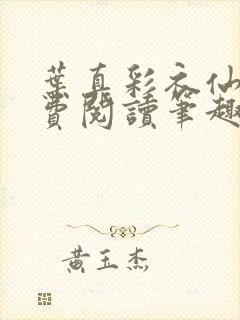 葉真彩衣仙
費閱讀筆趣
黃玉杰